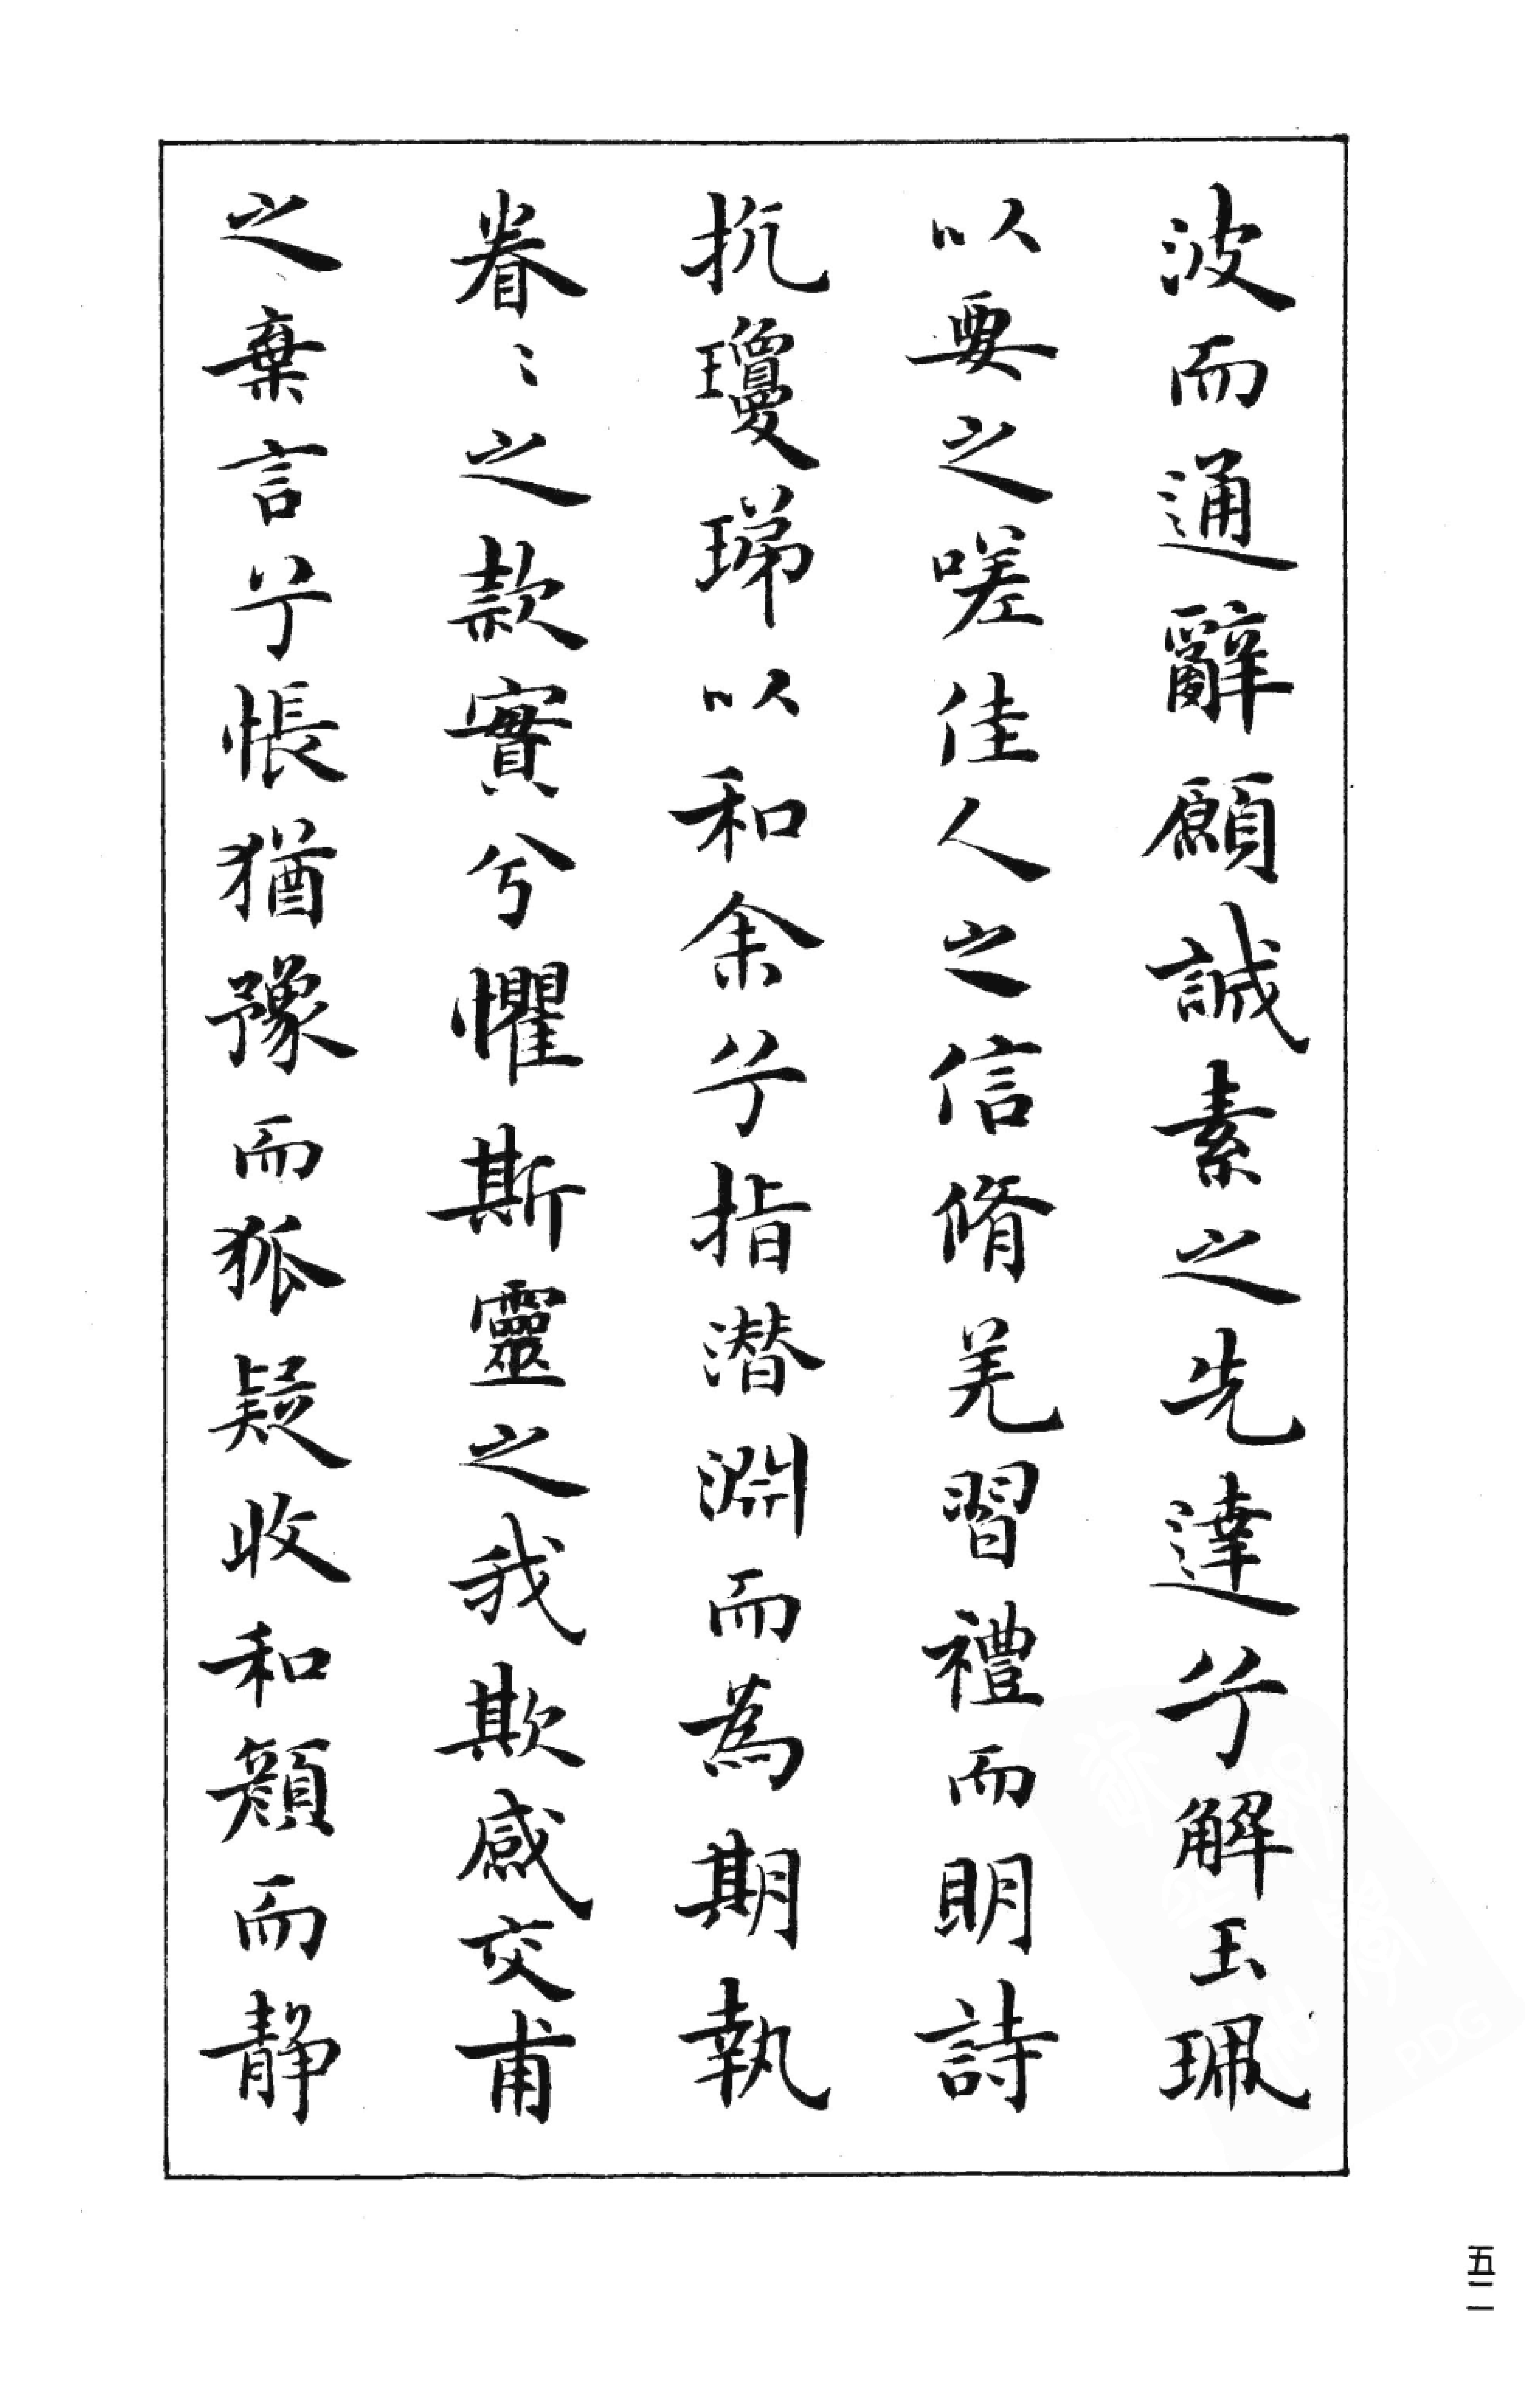 波而通辭願誠素之先達兮解玉珮
以要之嗟佳人之信脩羌習禮而明詩
抗瓊珶以和余兮指潜淵而為期執
眷〻之款實兮懼斯靈之我欺感交甫
之棄言兮悵猶豫而狐疑收和顏而静
五二